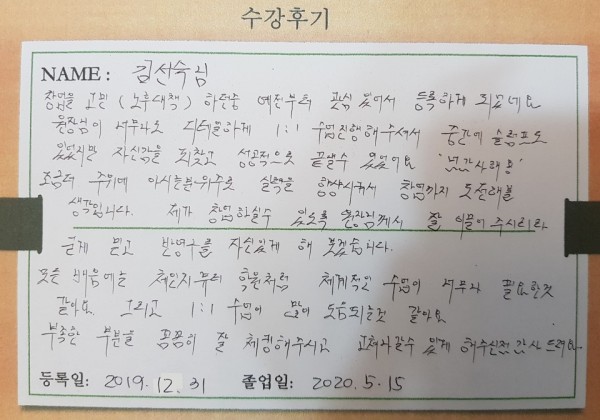 수강후기
NAME: 김선숙님
창업을 고민 (노후대책) 하던중 예전부터 관심 있어서 등록하게 되었네요
원장님이 너무나도 디테일하게 1:1 수업진행해주셔서 중간에 슬럼프도
있었지만 자신감을 되찾고 성공적으로 끝낼수 있었어요
조금더 주위에 아시는분위주로 실력을 향상시켜서 창업까지 도전해볼
생각입니다. 제가 창업하실수 있도록 원장님께서 잘 이끌어주시리라
굳게 믿고 반영구를 자신있게 해 보겠습니다.
모든 배움에는 체인지뷰티 학원처럼 체계적인 수업이 너무나 필요한것
같아요. 그리고 1:1 수업이 많이 도움되는것 같아요
부족한 부분을 꼼꼼히 잘 체킹해주시고 고쳐나갈수 있게 해주신점 감사드려요
등록일: 2019.12.31 졸업일: 2020.5.15